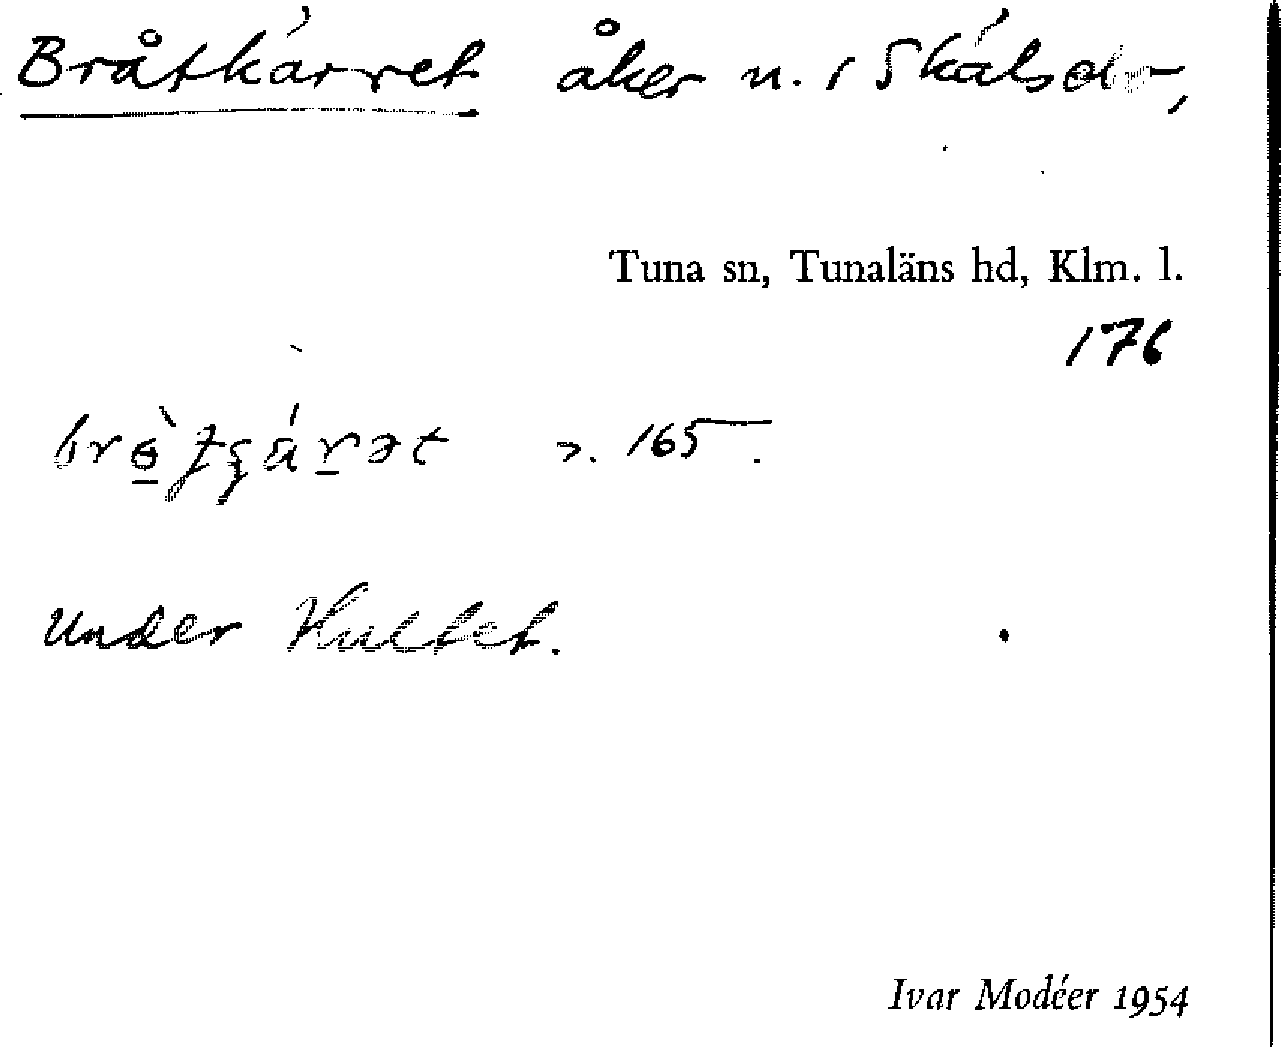 Bråtkärret åker n. i Skälsebo,
Tuna sn, Tunaläns hd, Klm. l.
176
165.
Under Hultet.
Ivar Modéer 1954